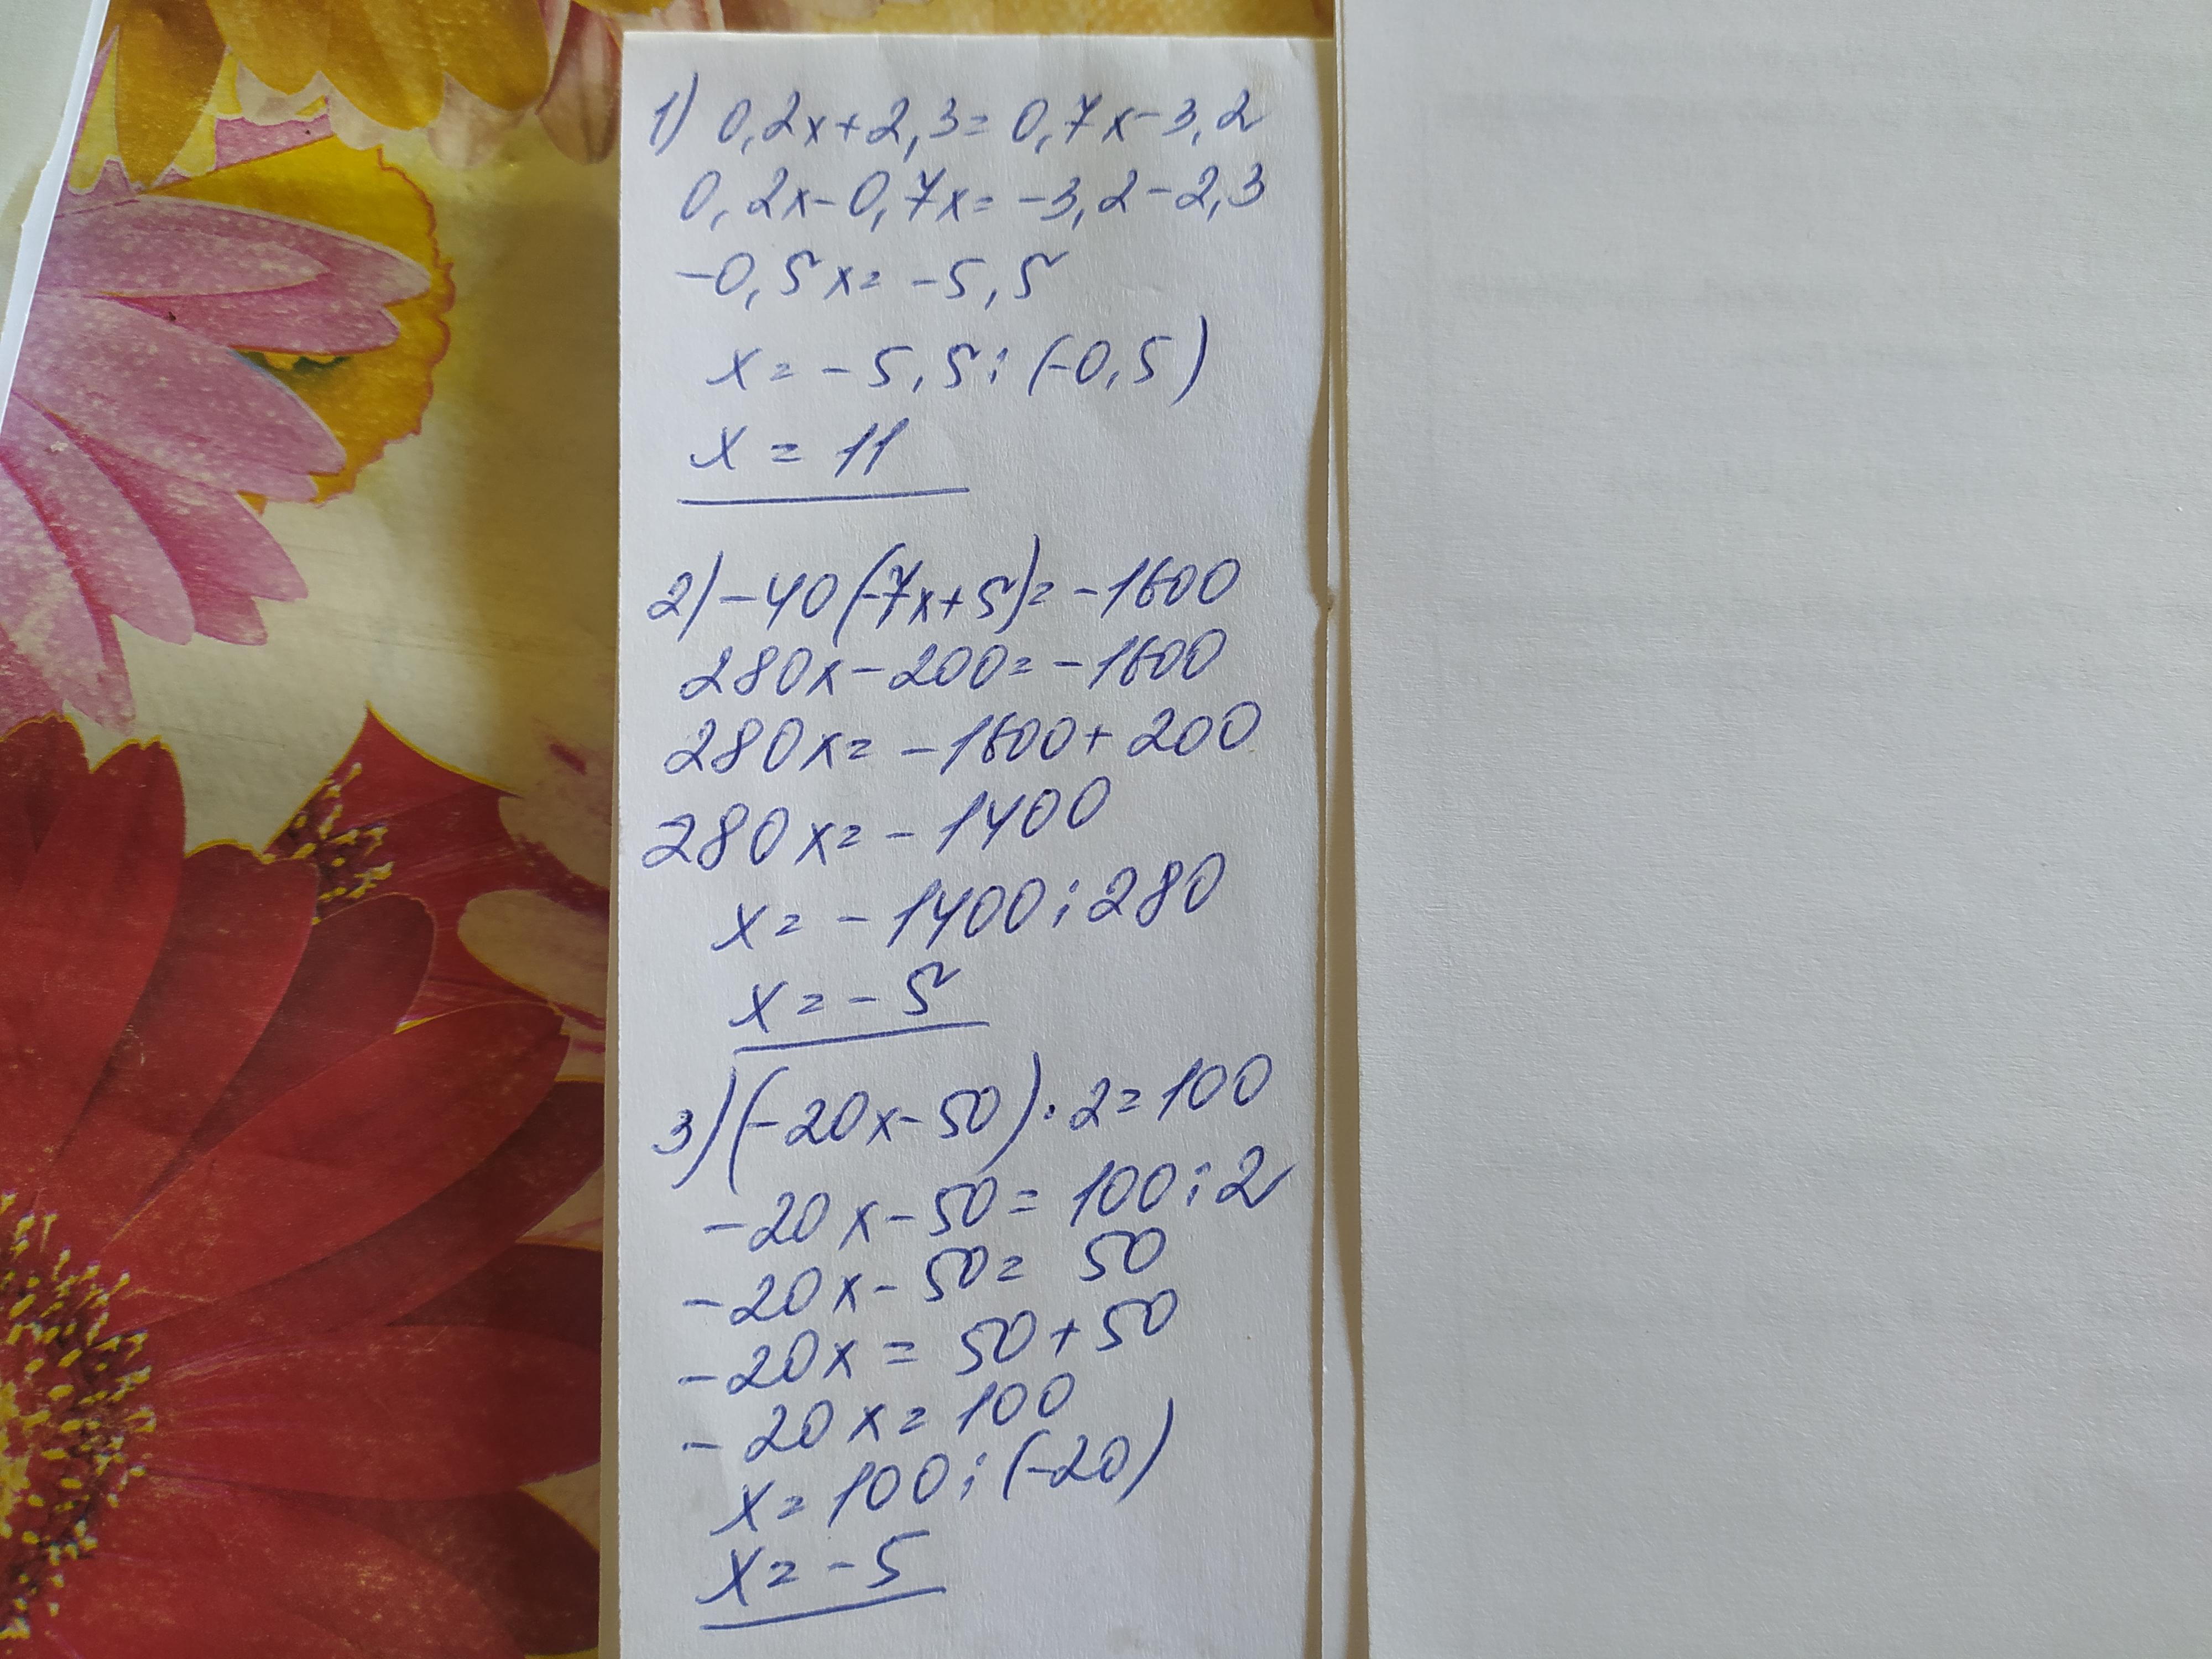 1) 0,2x+2,3=0,7x-3,2
0,2x-0,7x=-3,2-2,3
-0,5x=-5,5
x=-5,5:(-0,5)
x=11
2)-40(-7x+5)=-1600
280x-200=-1600
280x=-1600+200
280x=-1400
x=-1400:280
x=-5
3)(-20x-50)·2=100
-20x-50=100:2
-20x-50=50
-20x=50+50
-20x=100
x=100:(-20)
x=-5